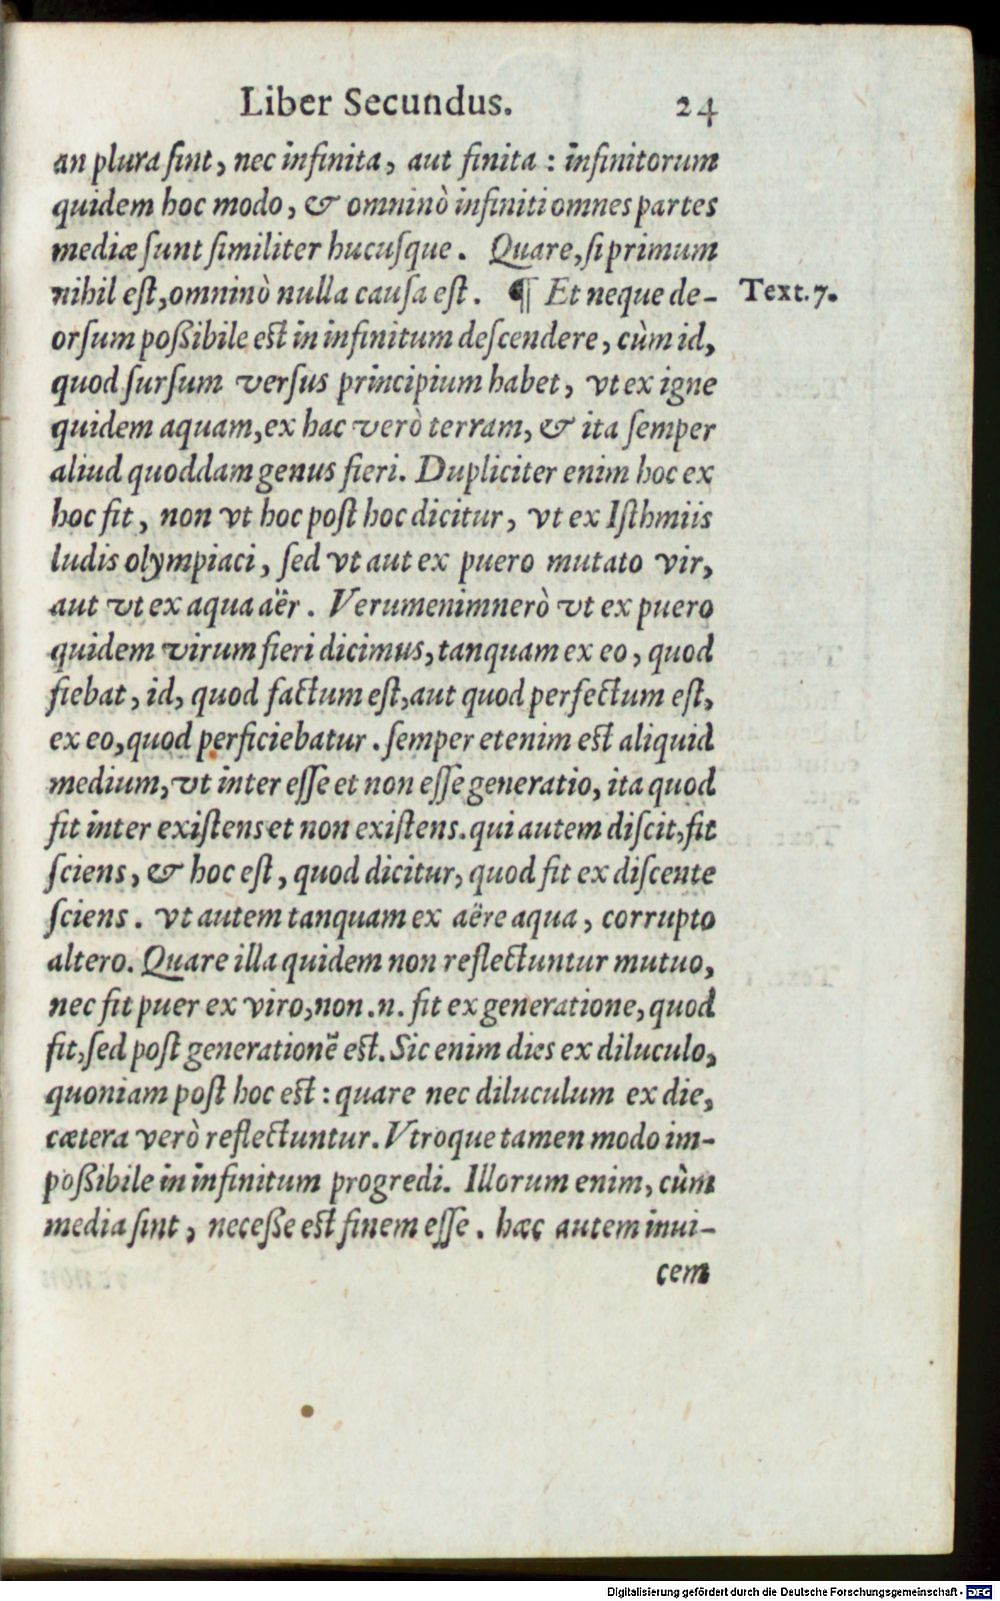 Liber Secundus. 24
an plura ſint, nec infinita, aut finita: infinitorum
quidem hoc modo, & omninò infiniti omnes partes
mediæ ſunt ſimiliter hucuſque. Quare, ſi primum
nihil eſt, omninò nulla cauſa eſt. ¶ Et neque de-
Text. 7.
orſum poßibile eſt in infinitum deſcendere, cùm id,
quod ſurſum verſus principium habet, vt ex igne
quidem aquam, ex hac verò terram, & ita ſemper
aliud quoddam genus fieri. Dupliciter enim hoc ex
hoc fit, non vt hoc poſt hoc dicitur, vt ex Iſthmiis
ludis olympiaci, ſed vt aut ex puero mutato vir,
aut vt ex aqua aër. Verumenimnerò vt ex puero
quidem virum fieri dicimus, tanquam ex eo, quod
fiebat, id, quod factum eſt, aut quod perfectum eſt,
ex eo, quod perficiebatur. ſemper etenim eſt aliquid
medium, vt inter eſſe et non eſſe generatio, ita quod
fit inter exiſtens et non exiſtens. qui autem diſcit, fit
ſciens, & hoc eſt, quod dicitur, quod fit ex diſcente
ſciens. vt autem tanquam ex aëre aqua, corrupto
altero. Quare illa quidem non reflectuntur mutuo,
nec fit puer ex viro, non .n. fit ex generatione, quod
fit, ſed poſt generationẽ eſt. Sic enim dies ex diluculo,
quoniam poſt hoc eſt: quare nec diluculum ex die,
cætera verò reflectuntur. Vtroque tamen modo im-
poßibile in infinitum progredi. Illorum enim, cùm
media ſint, neceße eſt finem eſſe. hæc autem inui-
cem
Digitalisierung gefördert durch die Deutsche Forschungsgemeinschaft - DFG